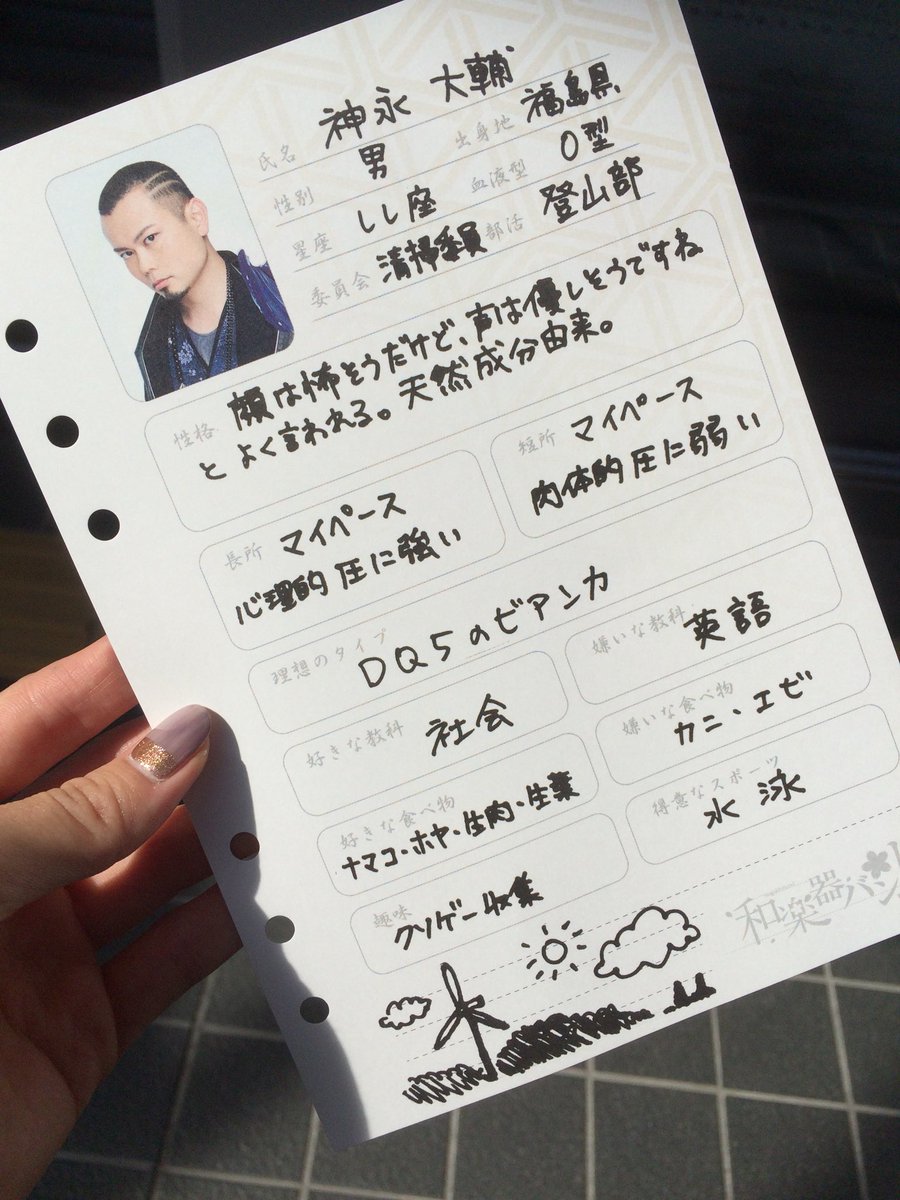 氏名 神永 大輔
性別 男 出身地 福島県
星座 しし座 血液型 O型
委員会 清掃委員 部活 登山部
性格 顔は怖そうだけど、声は優しそうですね
とよく言われる。天然成分由来。
長所 マイペース
心理的圧に強い
短所 マイペース
肉体的圧に弱い
理想のタイプ DQ5のビアンカ
好きな教科 社会
嫌いな教科 英語
好きな食べ物
ナマコ・ホヤ・生肉・生葉
嫌いな食べ物
カニ・エビ
趣味 クソゲー収集
得意なスポーツ
水泳
和楽器バンド